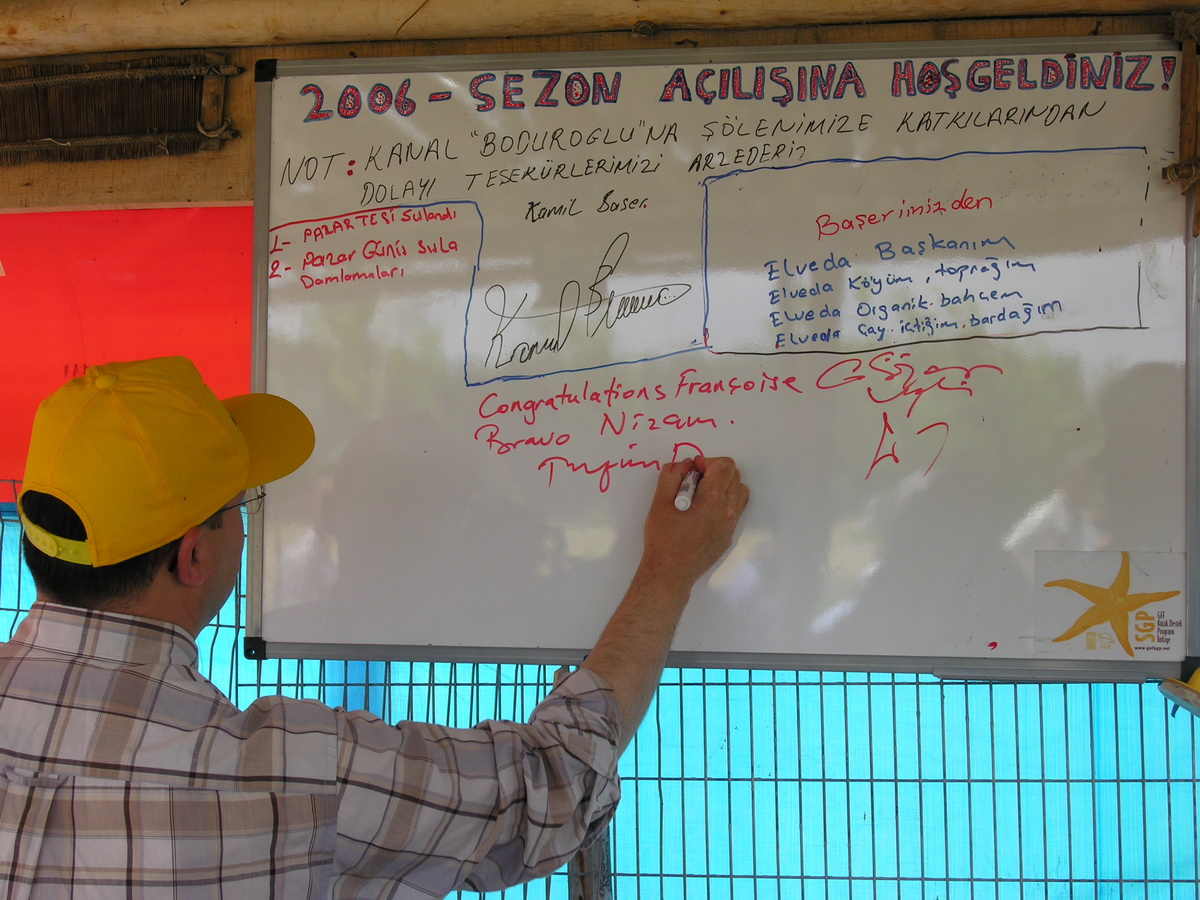 2006 - SEZON AÇILIŞINA HOŞGELDİNİZ!
NOT: KANAL "BODUROGLU"NA ŞÖLENİMİZE KATKILARINDAN
DOLAYI TEŞEKÜRLERİMİZİ ARZEDERİZ
Kamil Başer.
1- PAZARTESİ sulandı
2- Pazar Günü sula
Damlamaları
Başerimizden
Elveda Başkanım
Elveda Köyüm, toprağım
Elveda Organik bahçem
Elveda Çay içtiğim bardağım
Congratulations Françoise
Bravo Nizam.
SGP
GEF
Küçük Destek
Programı
Türkiye
www.gefsgp.net